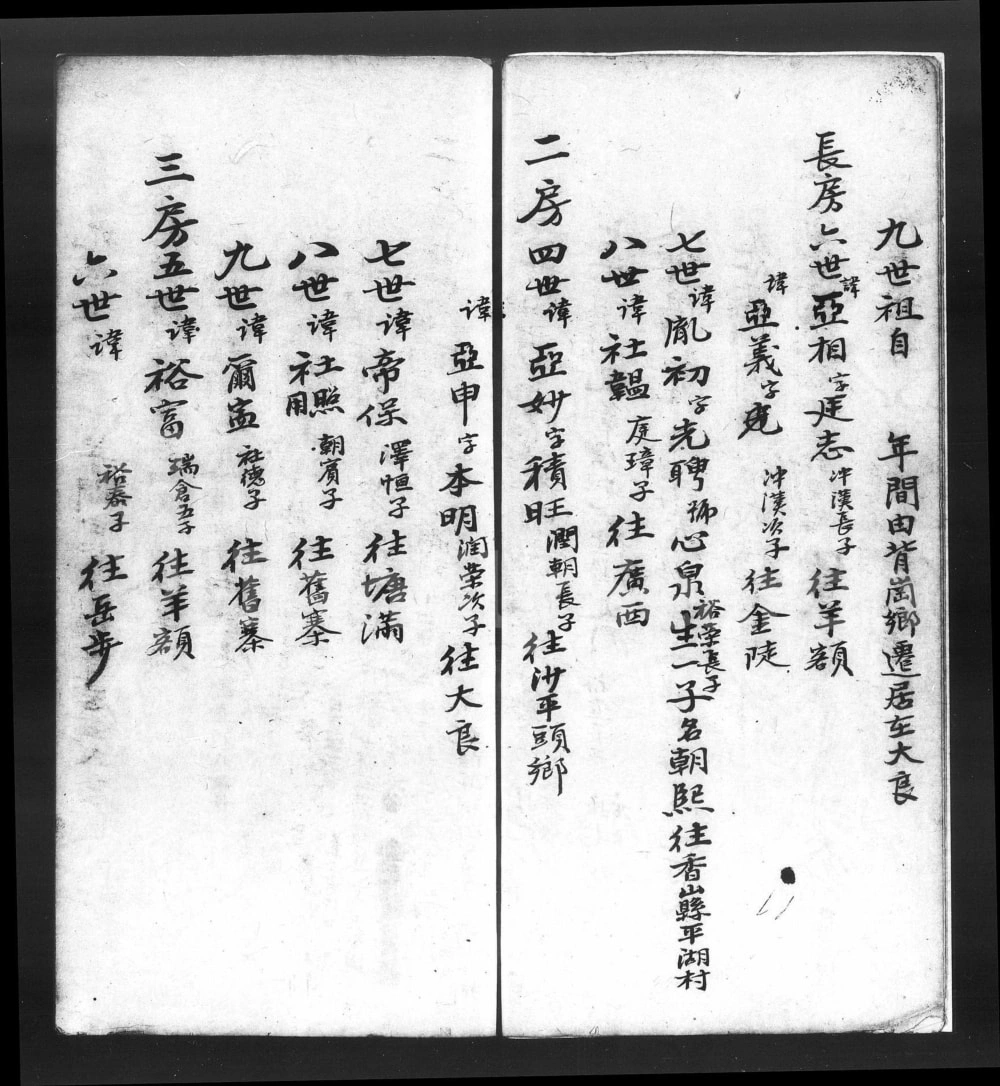 九世祖自　年間由背崗鄉遷居在大良
長房六世諱亞相字廷志冲漢長子往羊額
諱亞義字 冲漢次子往金陡
七世諱胤初字光聘號心泉裕榮長子生一子名朝熙往香山縣平湖村
八世諱社韞庭璋子往廣西
二房四世諱亞妙字積旺潤朝長子往沙平頭鄉
諱亞申字本明潤榮次子往大良
七世諱帝保澤恒子往塘滿
八世諱社照用朝賓子往舊寨
九世諱爾孟社德子往舊寨
三房五世諱裕富瑞倉五子往羊額
六世諱　裕泰子往岳步